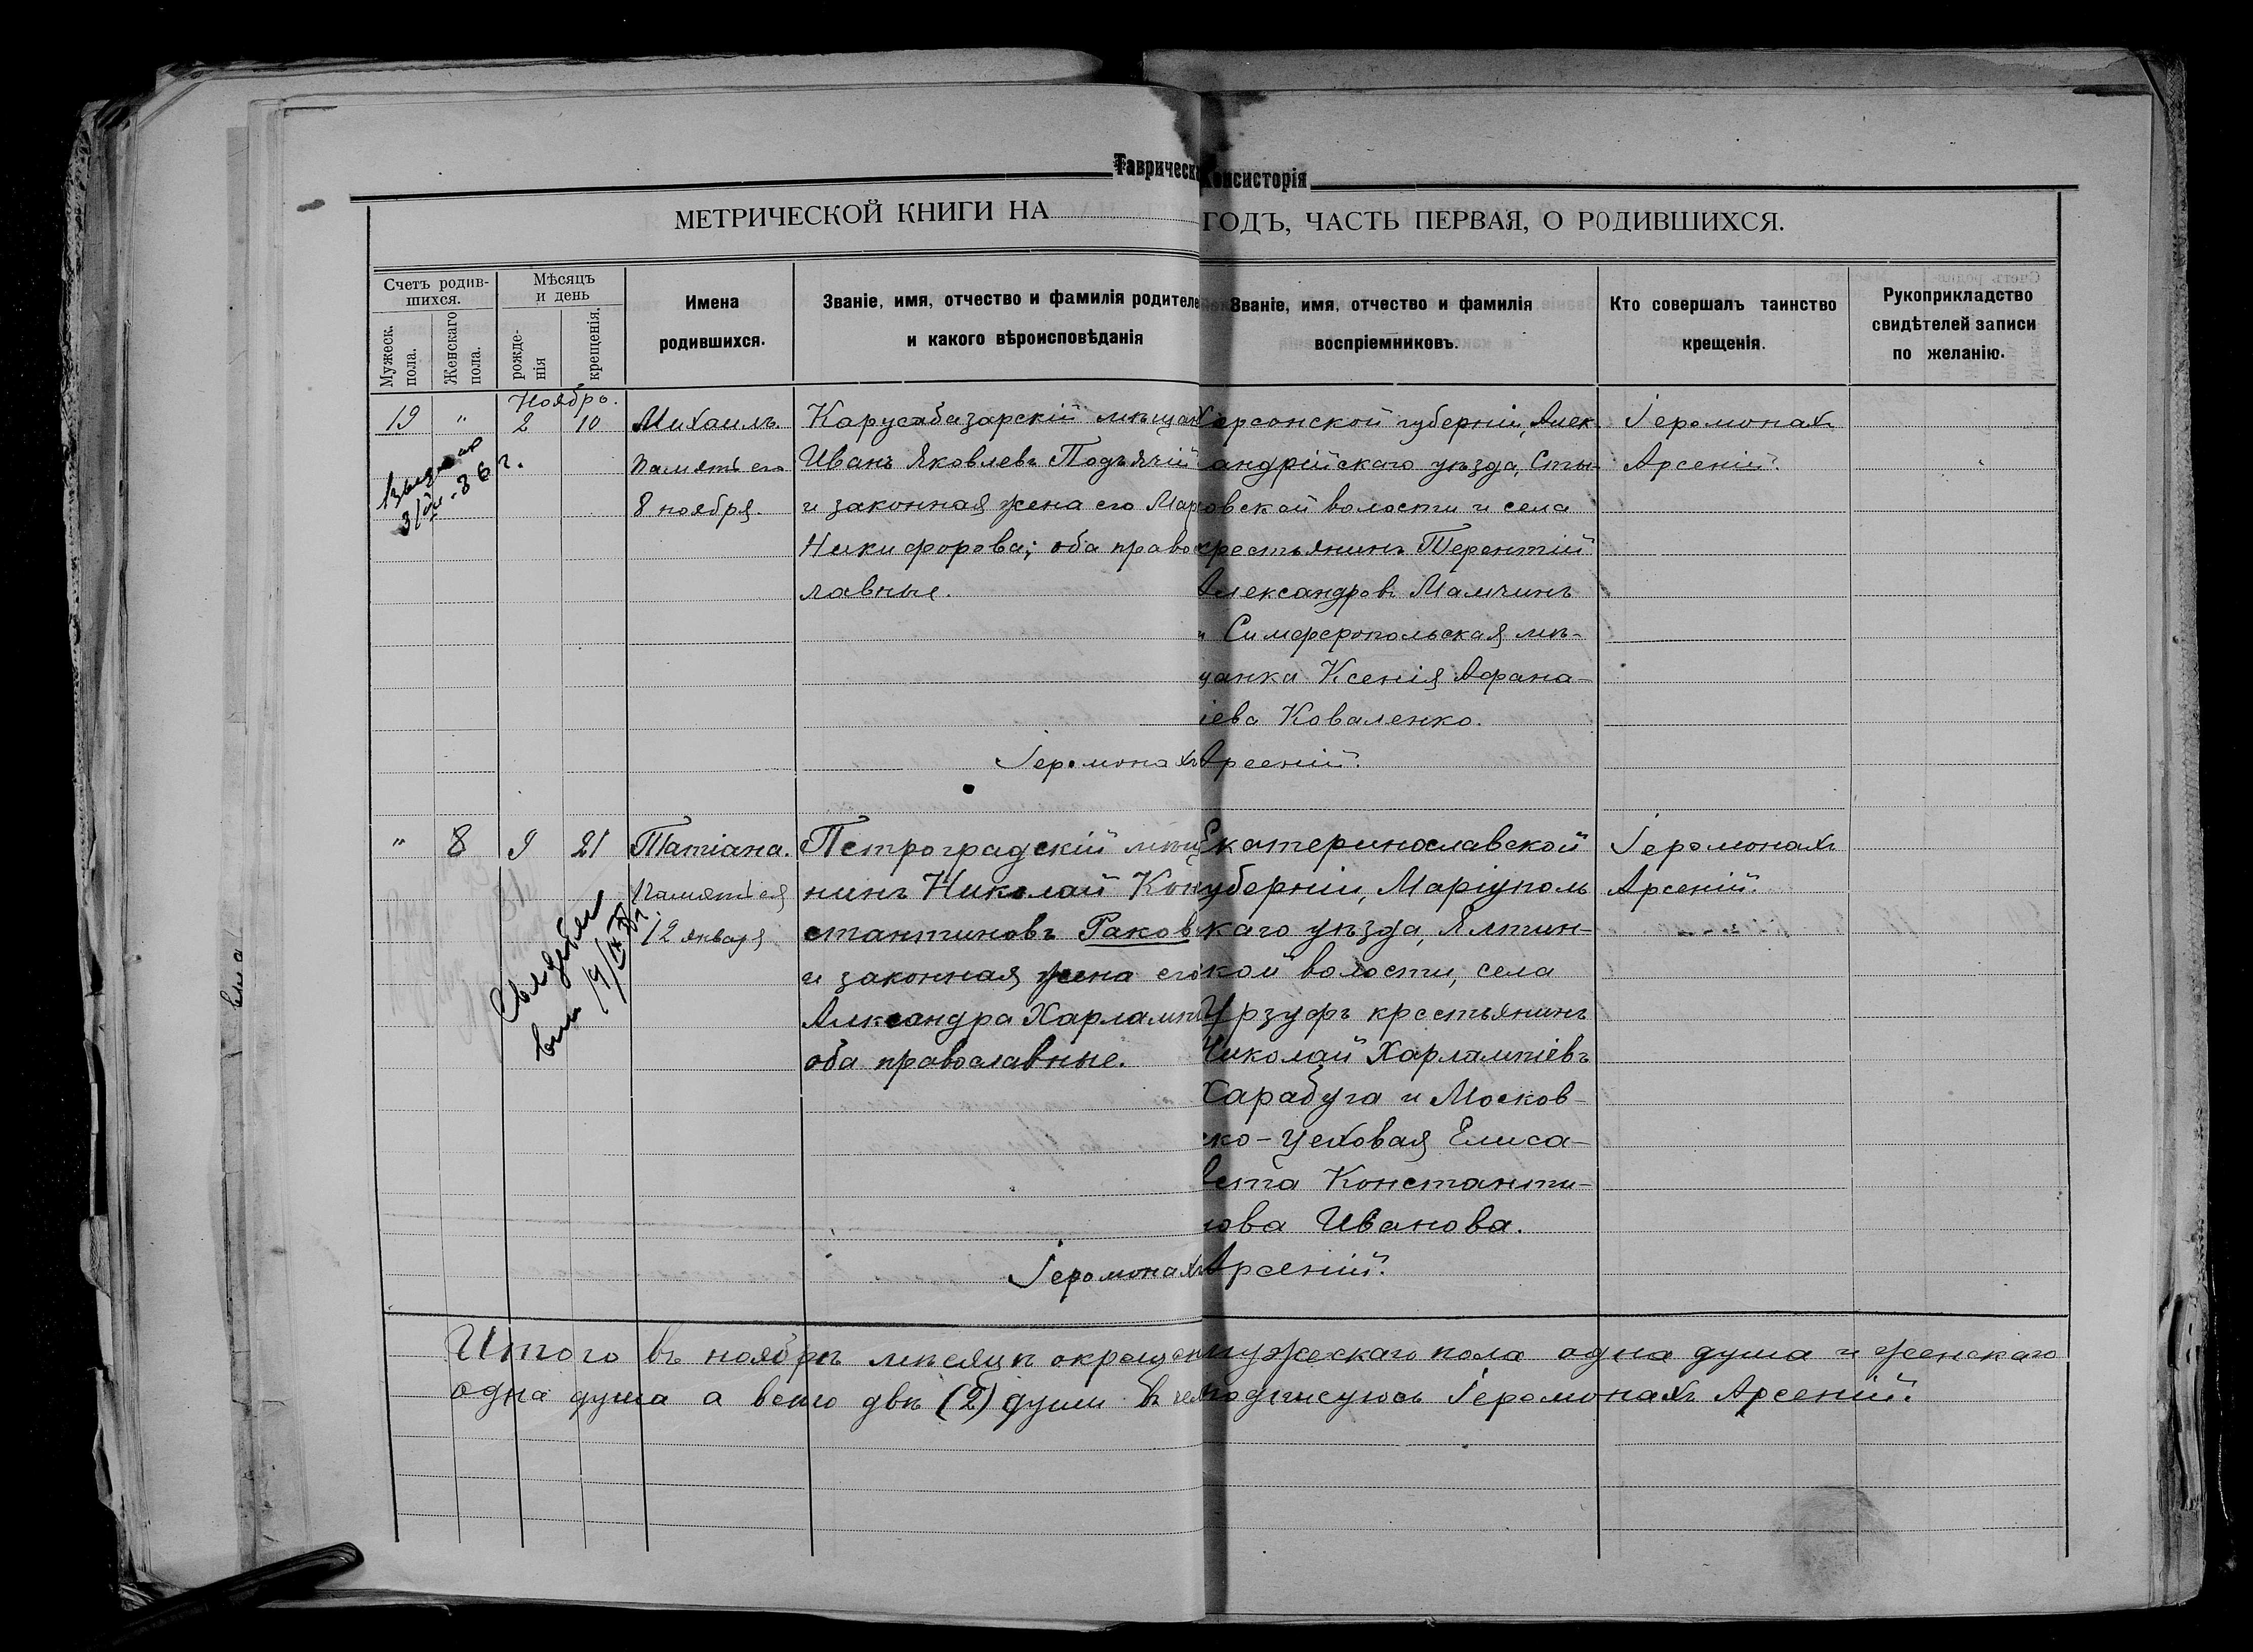 Таврическ Консисторія
МЕТРИЧЕСКОЙ КНИГИ НА ГОДЪ, ЧАСТЬ ПЕРВАЯ, О РОДИВШИХСЯ.
Счетъ родив-
шихся.
Мужеск.
пола.
Женскаго
пола.
Мѣсяцъ
и день
рожде-
нія
крещенія.
Имена
родившихся.
Званіе, имя, отчество и фамилія родителе
и какого вѣроисповѣданія
Званіе, имя, отчество и фамилія
воспріемниковъ.
Кто совершалъ таинство
крещенія.
Рукоприкладство
свидѣтелей записи
по желанію.
Ноябрь.
19 " 2 10
Михаилъ.
Память его
8 ноября.
Карусабазарскій мѣщан
Иванъ Яковлевъ Подъячій
и законная жена его Мар
Никифорова; оба правос
лавные.
Херсонской губерніи, Алек-
андрійскаго уѣзда, Сты-
овской волости и села
крестьянинъ Терентій
Александровъ Мамчинъ
и Симферопольская мѣ-
щанка Ксенія Афана-
іева Коваленко.
Іеромонахъ
Арсеній.
Іеромонахъ Арсеній.
" 8 9 21
Татіана.
Память ея
12 января
Петроградскій мѣщ
нинъ Николай Кон
стантиновъ Раков
и законная жена его
Александра Харлампі
оба православные.
Екатеринославской
губерніи, Маріуполь
каго уѣзда, Ялтин-
кой волости, села
Урзуфъ крестьянинъ
Николай Харлампіевъ
Харабуга и Москов-
ско-цеховая Елиса-
вета Константи-
нова Иванова.
Іеромонахъ
Арсеній.
Іеромонахъ Арсеній.
Итого въ ноябрѣ мѣсяцѣ окрещен мужескаго пола одна душа и женскаго
одна душа а всего двѣ (2) души. Въ чем подписуюсь Іеромонахъ Арсеній.